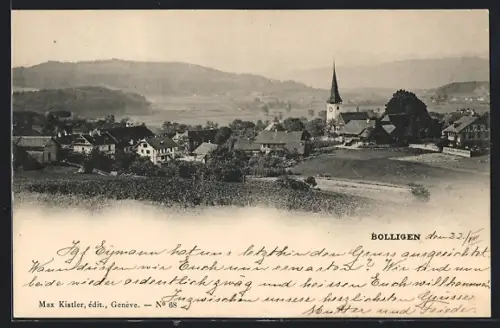 BOLLIGEN den 22/VII
Igf Eymann hat uns letzthin den Gruss ausgerichtet
Wann dürfen wir Euch nun erwarten? Wir sind nun
beide wieder ordentlich zwäg und heissen Euch willkommen
Inzwischen unsere herzlichsten Grüsse
Max Kistler, édit., Genève. — No 68
Mutter und